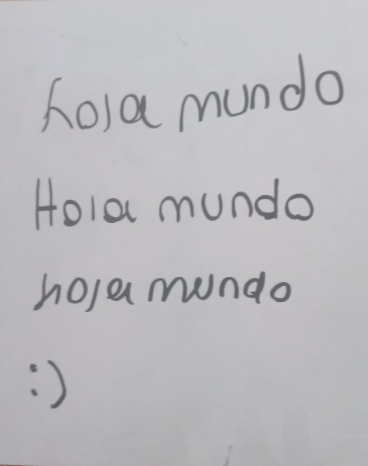 hola mundo
Hola mundo
hola mundo
:)